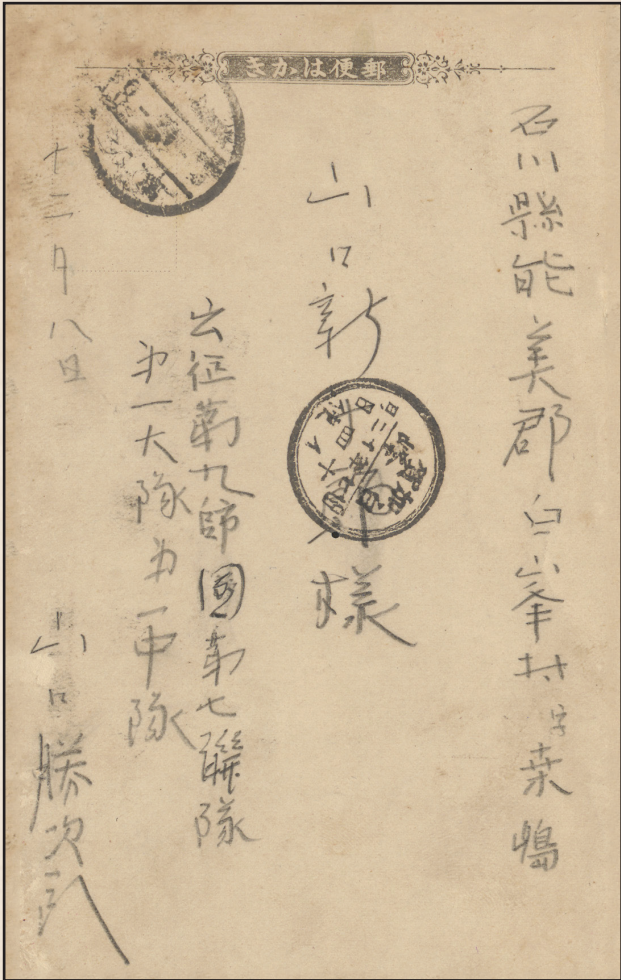 郵便はかき
石川縣能美郡白峯村字桑嶋
山口新
様
出征第九師團第七聯隊
第一大隊第一中隊
山口勝次郎
十二月八日
加賀